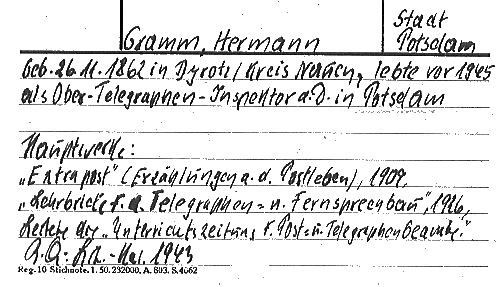 Stadt
Gramm, Hermann Potsdam
Geb. 26.11.1862 in Dyrotz/Kreis Nauen, lebte vor 1945
als Ober-Telegraphen-Inspektor a.D. in Potsdam
Hauptwerke:
„Extrapost" (Erzählungen a. d. Postleben), 1909,
„Lehrbriefe f. d. Telegraphen- u. Fernsprechbau", 1926,
der „Unterrichtszeitung f. Post- u. Telegraphenbeamte."
Q.: Kü.- 1943
Reg. 10 Stichnote. 1. 50. 232000. A. 803. S. 4062